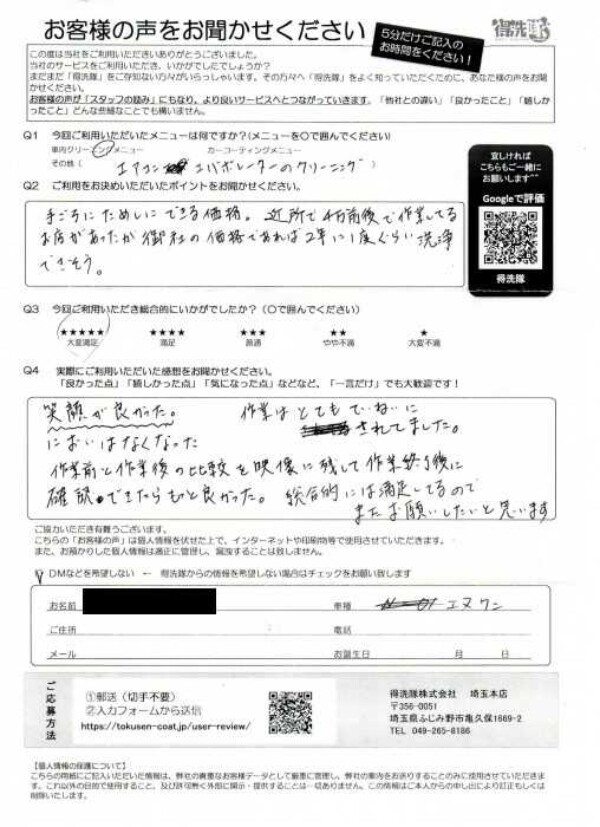 お客様の声をお聞かせください
5分だけご記入の
お時間をください！
得洗隊
この度は当社をご利用いただきありがとうございました。
当社のサービスをご利用いただき、いかがでしたでしょうか？
まだまだ「得洗隊」をご存知ない方々がいらっしゃいます。その方々へ「得洗隊」をよく知っていただくために、あなた様の声をお聞かせください。
お客様の声が「スタッフの励み」にもなり、より良いサービスへとつながっていきます。「他社との違い」「良かったこと」「嬉しかったこと」どんな些細なことでも構いません。
Q1 今回ご利用いただいたメニューは何ですか？(メニューを○で囲んでください)
車内クリーニングメニュー カーコーティングメニュー
その他（ エアコン エバポレーターのクリーニング ）
宜しければ
こちらもご一緒に
お願いします
Googleで評価
得洗隊
Q2 ご利用をお決めいただいたポイントをお聞かせください。
手ごろにためしにできる価格。近所で4万前後で作業してる
お店があったが御社の価格であれば2年に1度ぐらい洗浄
できそう。
Q3 今回ご利用いただき総合的にいかがでしたか？（○で囲んでください）
★★★★★ ★★★★ ★★★ ★★ ★
大変満足 満足 普通 やや不満 大変不満
Q4 実際にご利用いただいた感想をお聞かせください。
「良かった点」「嬉しかった点」「気になった点」などなど、「一言だけ」でも大歓迎です！
笑顔が良かった。 作業はとてもていねいに
されてました。
においはなくなった
作業前と作業後の比較を映像に残して作業終了後に
確認できたらもっと良かった。総合的には満足してるので
またお願いしたいと思います
ご協力いただき有難うございます。
こちらの「お客様の声」は個人情報を伏せた上で、インターネットや印刷物等で使用させていただきます。
また、お預かりした個人情報は適正に管理し、漏洩することは致しません。
DMなどを希望しない ← 得洗隊からの情報を希望しない場合はチェックをお願い致します
お名前 車種 エヌワン
ご住所 電話
メール お誕生日 月 日
ご応募方法
①郵送（切手不要）
②入力フォームから送信
https://tokusen-coat.jp/user-review/
得洗隊株式会社 埼玉本店
〒356-0051
埼玉県ふじみ野市亀久保1669-2
TEL 049-265-8186
【個人情報の保護について】
こちらの用紙にご記入いただいた情報は、弊社の貴重なお客様データとして厳重に管理し、弊社の案内をお送りすることのみに使用させていただきます。これ以外の目的で使用すること、及び許可無く外部に開示・提供することは一切ありません。この情報はご本人からの申し出により訂正もしくは削除いたします。